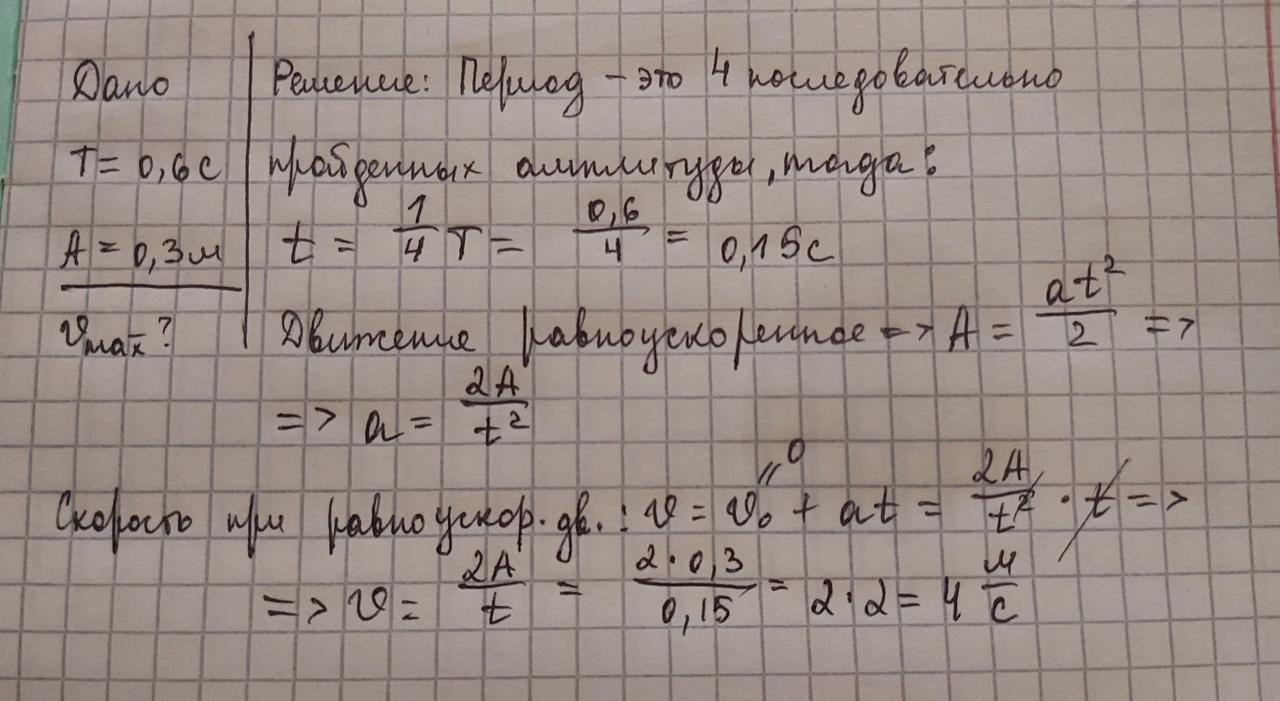 Дано Решение: Период – это 4 последовательно
T = 0,6 с пройденных амплитуды, тогда:
A = 0,3 м t = 1/4 T = 0,6/4 = 0,15 с
υmax? Движение равноускоренное => A = at²/2 =>
=> a = 2A/t²
Скорость при равноускор. дв.: υ = υ₀ + at = 2A/t² · t =>
=0
=> υ = 2A/t = 2·0,3/0,15 = 2·2 = 4 м/с